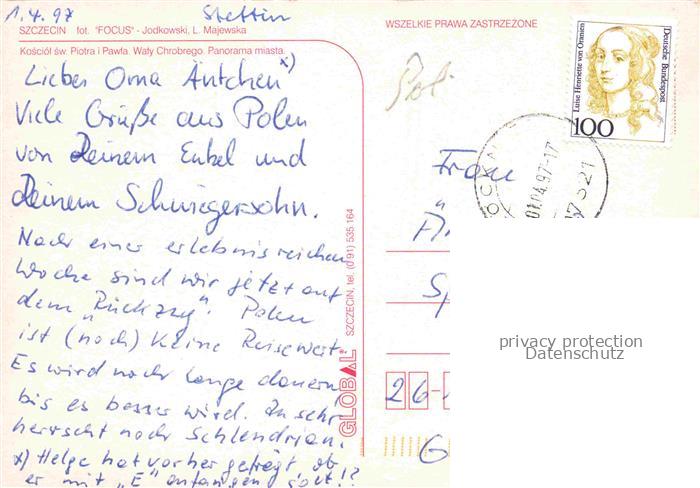 1.4.97 Stettin
SZCZECIN fot. "FOCUS" - Jodkowski, L. Majewska
Kościół św. Piotra i Pawła. Wały Chrobrego. Panorama miasta.
Lieber Oma Äntchen x)
Viele Grüße aus Polen
von Deinem Enkel und
Deinem Schwiegersohn.
Nach einer erlebnisreichen
Woche sind wir jetzt auf
dem „Rückzug". Polen
ist (noch) keine Reise wert.
Es wird noch lange dauern,
bis es besser wird. Zu sehr
herrscht noch Schlendrian.
x) Helge hat vorher gefragt ob
er mit „E" anfangen soll!?
GLOBAL SZCZECIN, tel. (0 91) 535 164
WSZELKIE PRAWA ZASTRZEŻONE
Luise Henriette von Oranien
Deutsche Bundespost
100
01.04.97-17
17321
Frau
Ä
Sp
26-
G
privacy protection
Datenschutz